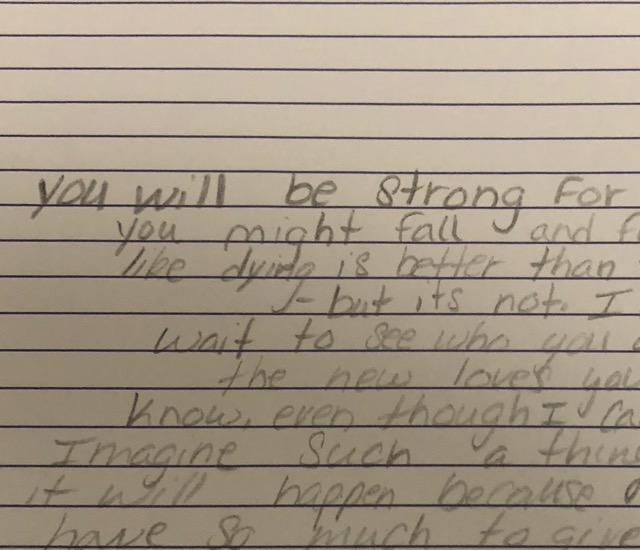 you will be strong for
you might fall and f
like dying is better than
- but its not. I
wait to see who you
the new loves you
know, even though I ca
Imagine such a thing
it will happen because
have so much to give